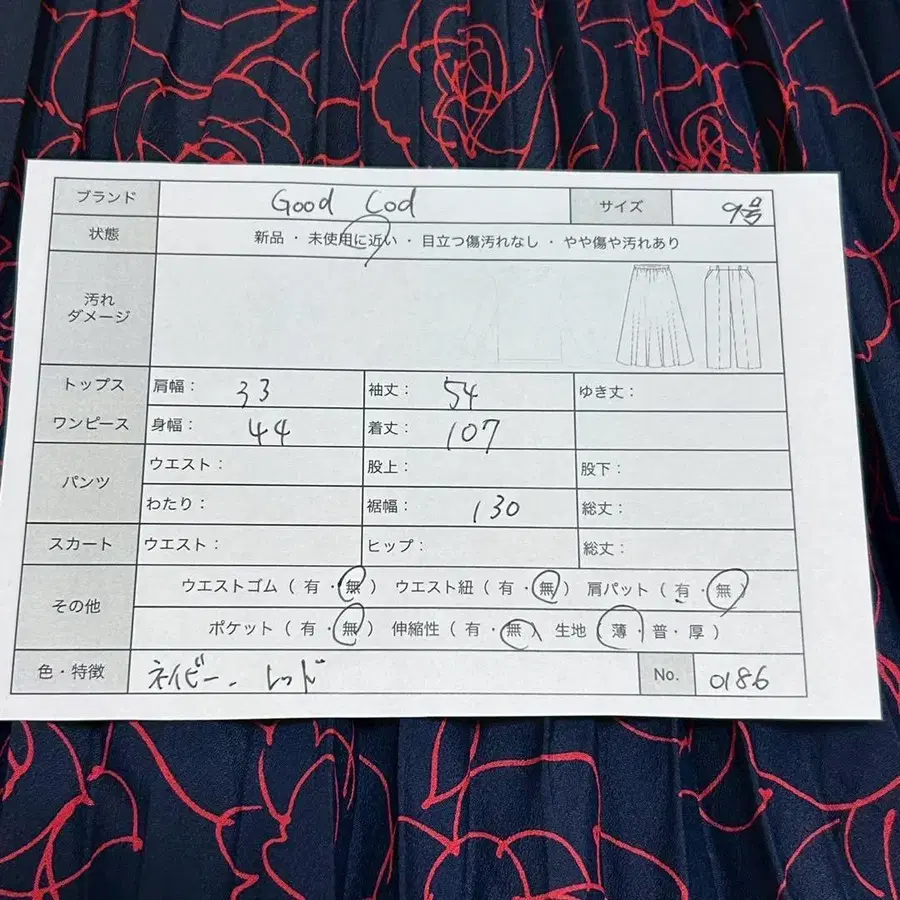 ブランド Good Cod サイズ 9号
状態 新品 ・ 未使用に近い ・ 目立つ傷汚れなし ・ やや傷や汚れあり
汚れ
ダメージ
トップス 肩幅： 33 袖丈： 54 ゆき丈：
ワンピース 身幅： 44 着丈： 107
パンツ ウエスト： 股上： 股下：
わたり： 裾幅： 130 総丈：
スカート ウエスト： ヒップ： 総丈：
その他 ウエストゴム（ 有 ・ 無 ） ウエスト紐（ 有 ・ 無 ） 肩パット（ 有 ・ 無 ）
ポケット（ 有 ・ 無 ） 伸縮性（ 有 ・ 無 ） 生地（ 薄 ・ 普 ・ 厚 ）
色・特徴 ネイビー、レッド No. 0186